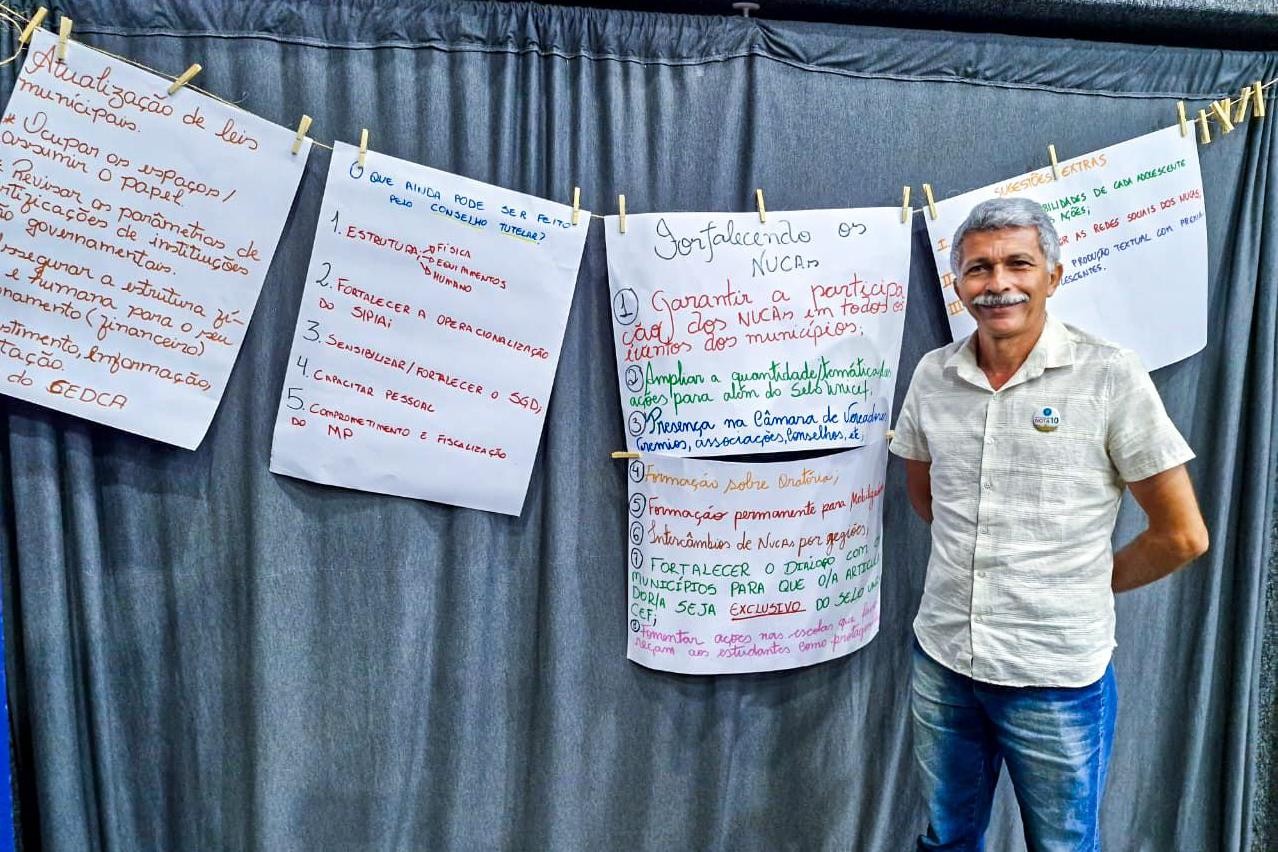 Atualização de leis
municipais.
* Ocupar os espaços/
assumir o papel.
* Revisar os parâmetros de
de instituições
governamentais.
assegurar a estrutura fí-
e humana para o seu
(financeiro)
informação,
do CEDCA
O QUE AINDA PODE SER FEITO
PELO CONSELHO TUTELAR?
1. ESTRUTURA FÍSICA
EQUIPAMENTOS
HUMANO
2. FORTALECER A OPERACIONALIZAÇÃO
DO SIPIA;
3. SENSIBILIZAR/FORTALECER O SGD;
4. CAPACITAR PESSOAL
5. COMPROMETIMENTO E FISCALIZAÇÃO
DO MP
Forfalecendo os
NUCAs
1 Garantir a participa
ção dos NUCAs em todos os
eventos dos municípios;
2 Ampliar a quantidade/temática das
ações para além do Selo Unicef;
3 Presença na Câmara de Vereadores
Gremios, associações, Conselhos, etc;
4 Formação sobre Oratória;
5 Formação permanente para
6 Intercâmbios de NUCAs por gegiões;
7 FORTALECER O DIÁLOGO COM
MUNICÍPIOS PARA QUE O/A ARTICULA
DOR/A SEJA EXCLUSIVO DO SELO UNI
CEF;
8 Fomentar ações nas escolas que
reçam aos estudantes como
SUGESTÕES EXTRAS
I. DE CADA ADOLESCENTE
AÇÕES;
AS REDES SOCIAIS DOS NUCAS,
PRODUÇÃO TEXTUAL COM
NOTA 10